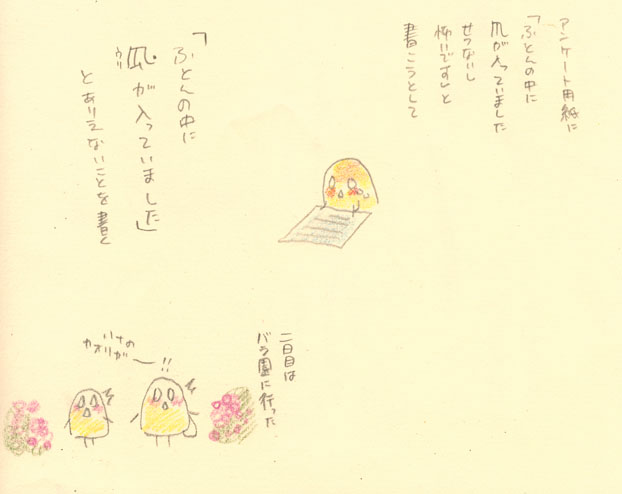 アンケート用紙に
「ふとんの中に
爪が入っていました
せつないし
怖いです」と
書こうとして
「ふとんの中に
瓜が入っていました」
ウリ
とありえないことを書く
二日目は
バラ園に行った
!!
カオリが